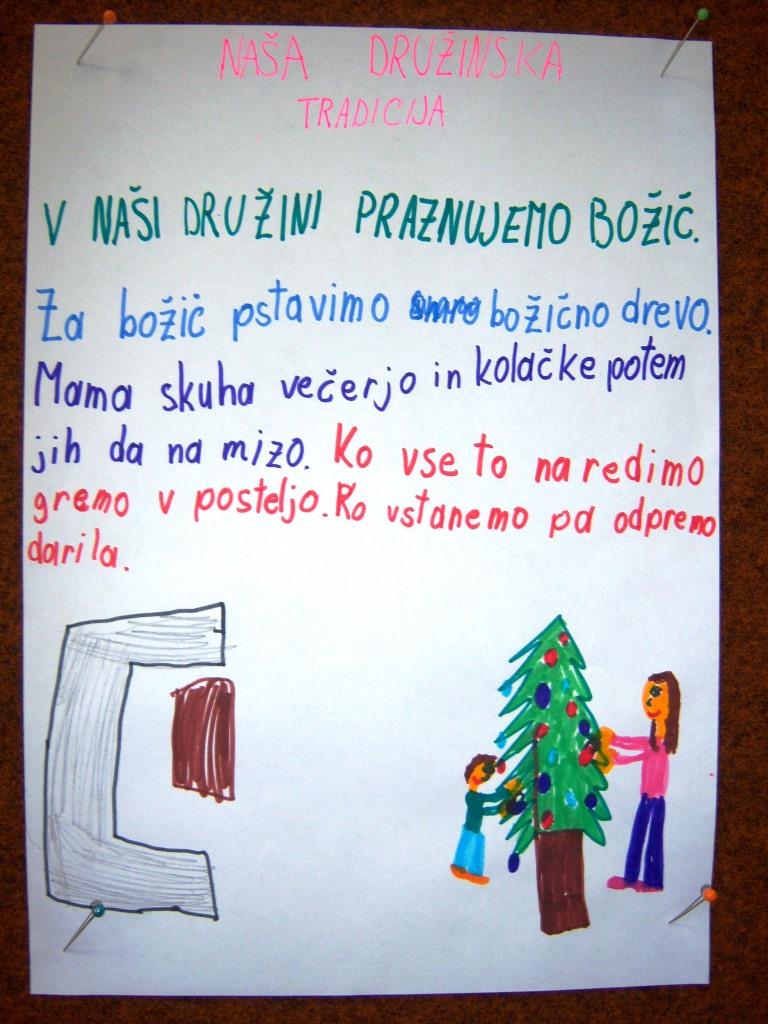 NAŠA DRUŽINSKA
TRADICIJA
V NAŠI DRUŽINI PRAZNUJEMO BOŽIČ.
Za božič pstavimo božično drevo.
Mama skuha večerjo in kolačke potem
jih da na mizo. Ko vse to naredimo
gremo v posteljo. Ko vstanemo pa odpremo
darila.